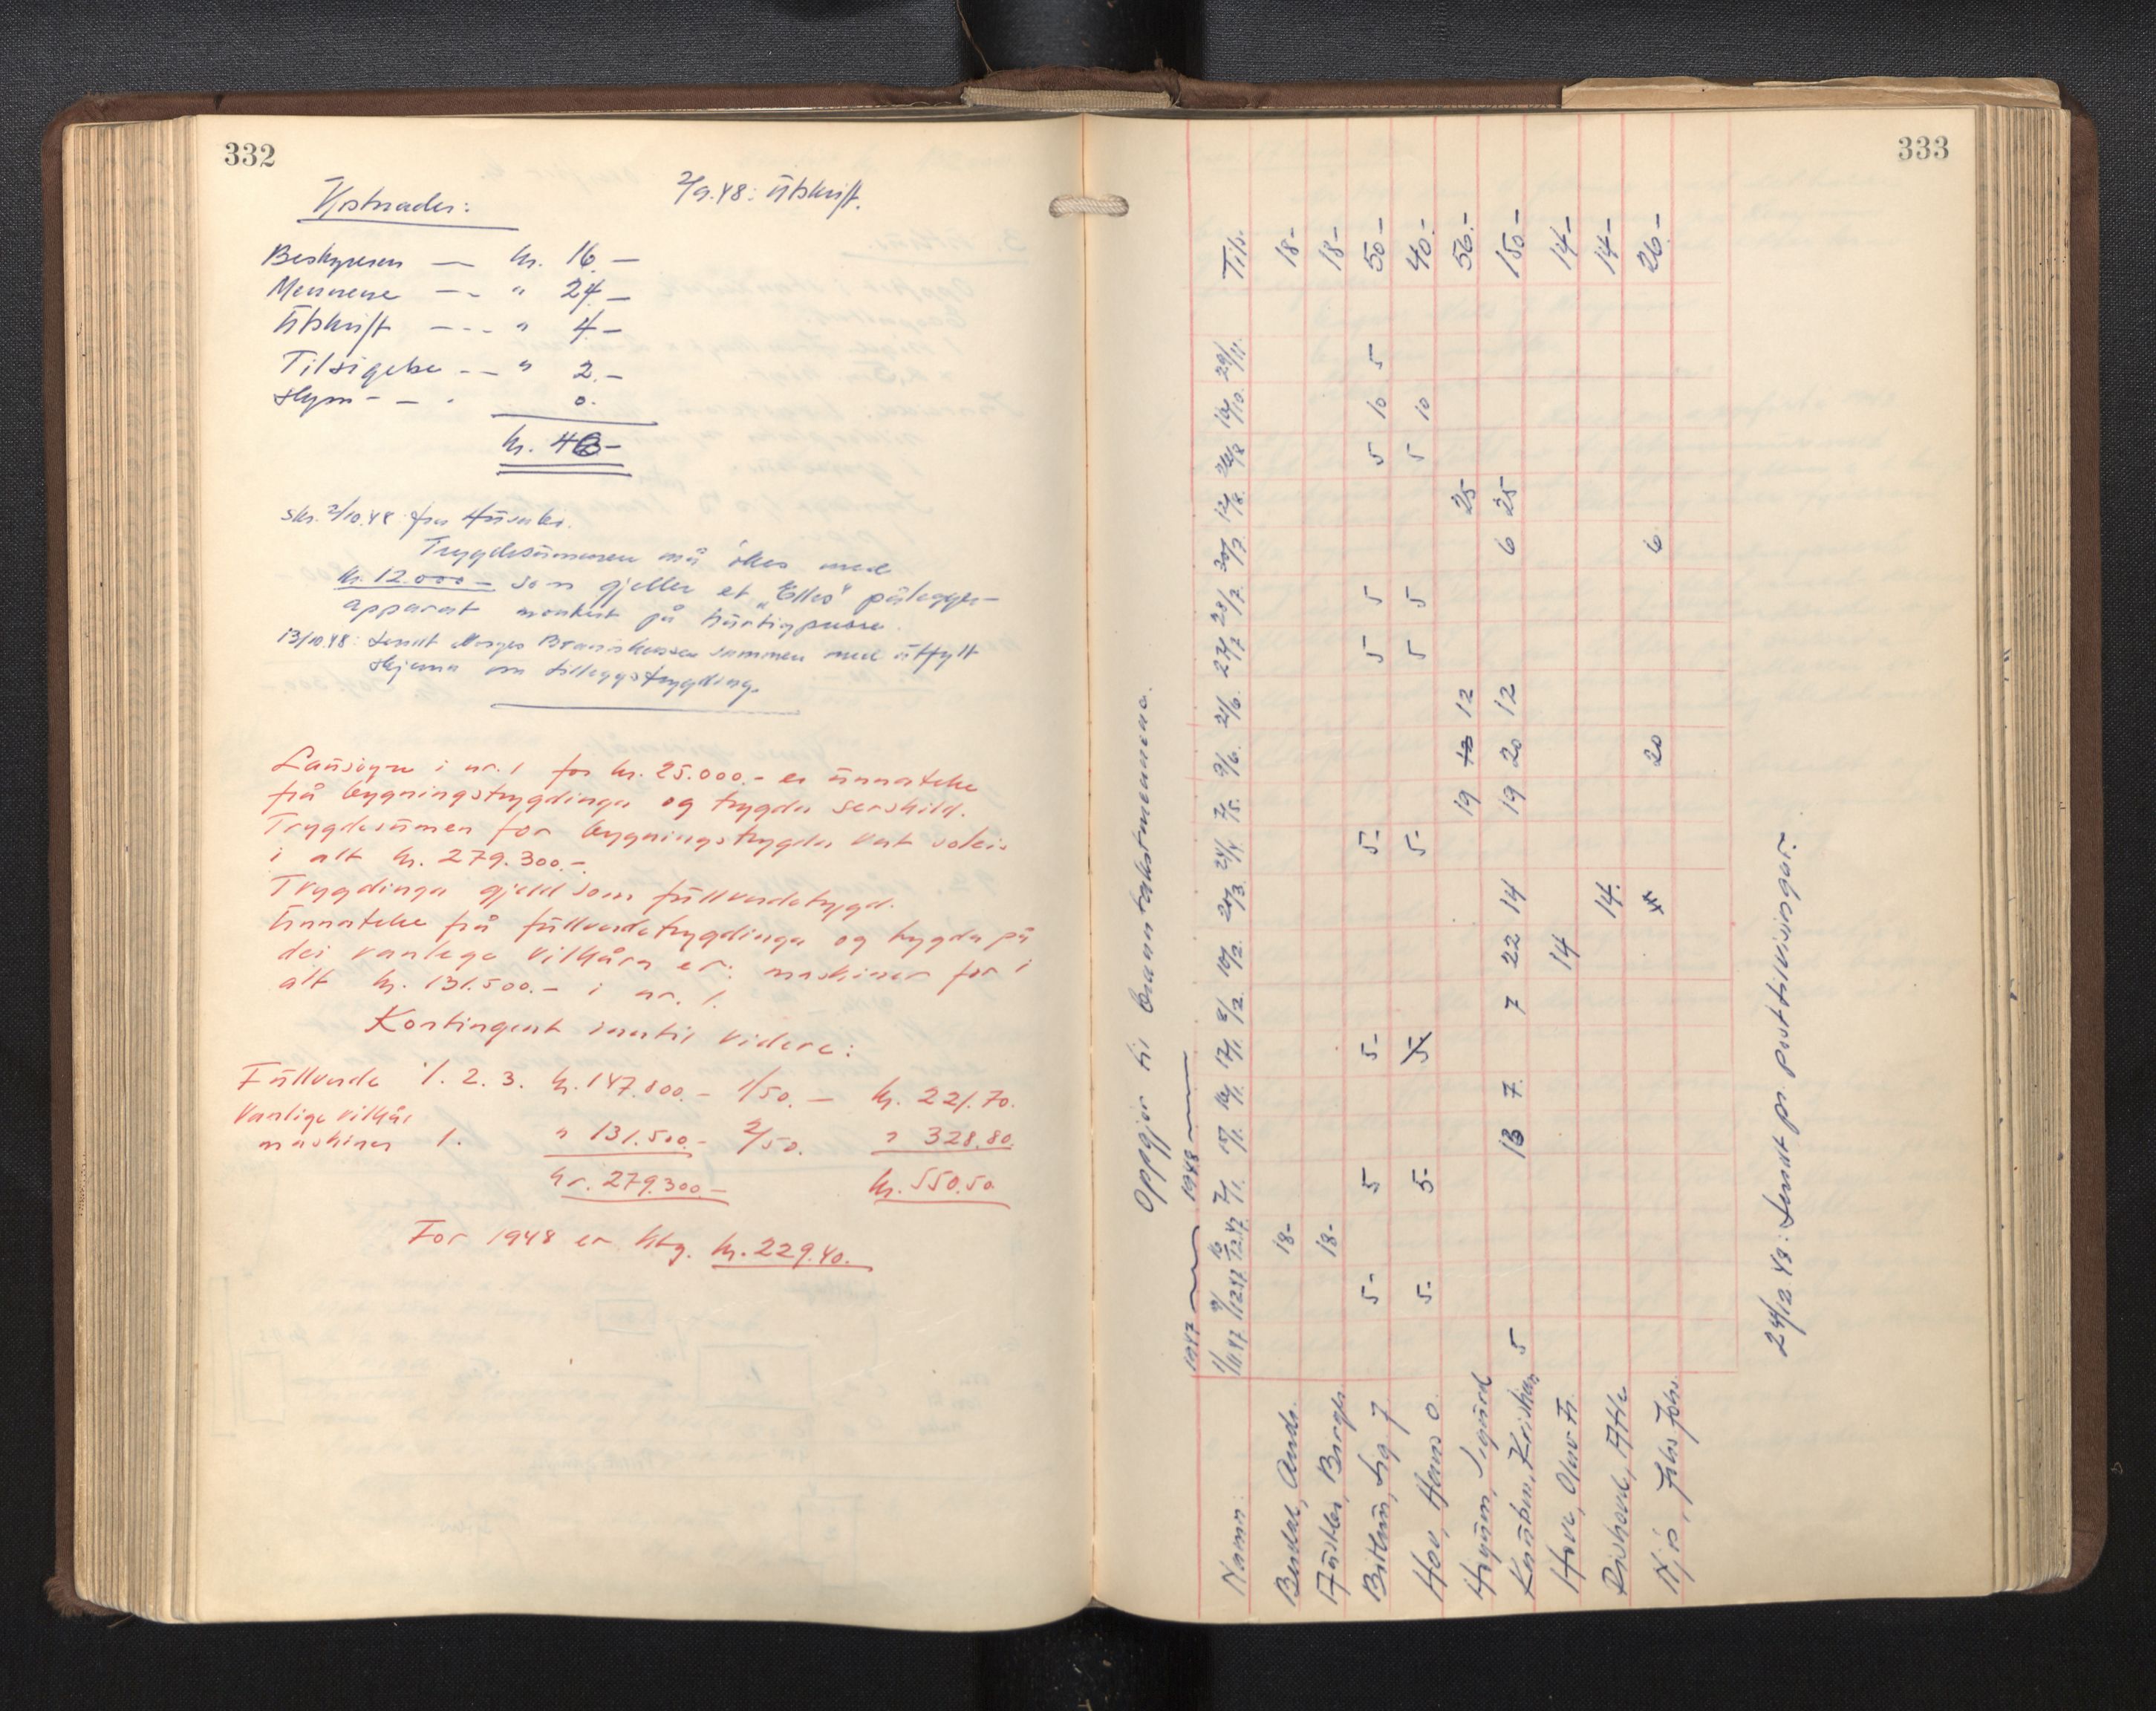 332
Kostnader:
2/9.48: Utskrift.
Bestyreren — kr. 16 —
Mennene — - " 24 —
Utskrift - - - " 4 —
Tilsigelse - — " 2. —
Skyss - — - 0.
kr. 46 —
skr. 2/10.48 fra
Trygdesummen må økes med
kr. 12.000 — som gjeller et "Elko" pålegger-
apparat montert på hurtigpresse.
13/10.48: Sendt Norges Brannkasse sammen med utfylt
skjema om tilleggstrygding.
Lausøyre i nr. 1 for kr. 25.000.- er unnateke
frå bygningstrygdinga og trygda serskild.
Trygdesumen for bygningstrygda vert soleis
i alt kr. 279.300.-
Trygdinga gjeld som fullverdetrygd.
Unnateke frå fullverdetrygdinga og trygda på
dei vanlege vilkåra er: maskiner for i
alt kr. 131.500.- i nr. 1.
Kontingent inntil videre:
Fullverde 1. 2. 3. kr. 147.800.- 1/50. — kr. 221.70.
Vanlige vilkår
maskiner 1. " 131.500.- 2/50. " 328.80.
kr. 279.300.- kr. 550.50
For 1948 er ktg. kr. 229.40.
333
Oppgjer til branntakstmennene.
1947 — 1948 —
Namn: 1/11.47 9/12.47 16/12.47 7/1. 15/1. 16/1. 17/1. 8/2. 10/2. 20/3. 21/4 7/5. 9/6. 21/6. 23/7 28/7. 30/7 12/8. 24/8 16/10. 29/11. Tils.
Berdal, Andr. 18- 18-
Bergh. 18- 18-
5- 5 5- 5- 5 5 5 10 5 50-
Hov, Hans O. 5- 5- 5- 5- 5 5 5 10 40.-
Sigurd 19 10 12 25 56.-
Knutsen, Kristian 5 13 7. 7 22 14 19 20 12 6 25 150 -
Hove, Olav Fr. 14 14 -
14. 14 -
Njøs, Johs. Johs. 20 6 26 -
24/12.48: Sendt pr. posttilvisingar.